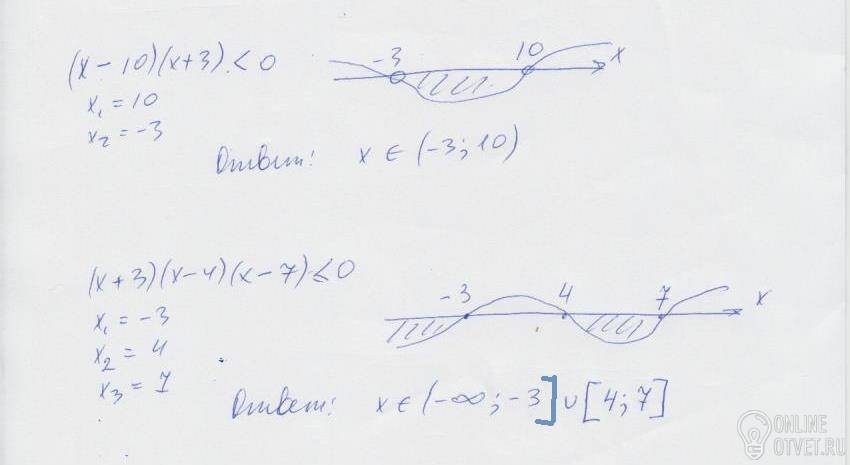 (x - 10)(x+3) < 0
x₁ = 10
x₂ = -3
-3 10 x
Ответ: x ∈ (-3; 10)
(x+3)(x-4)(x-7) ≤ 0
x₁ = -3
x₂ = 4
x₃ = 7
-3 4 7 x
Ответ: x ∈ (-∞; -3] ∪ [4; 7]
ONLINE
OTVET.RU